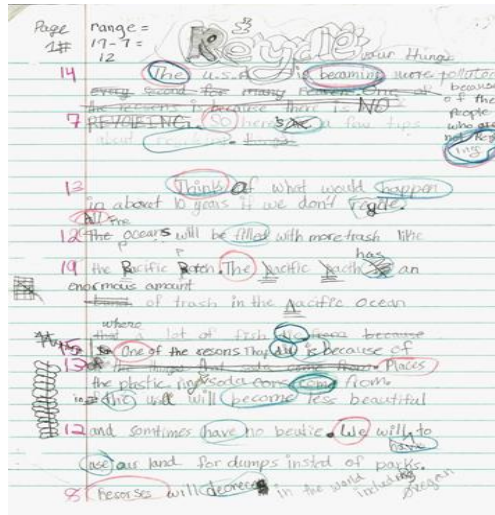 Page range =
1# 19-7 =
12
Recycle
your things
14 The U.S.A is becaming more polluted
every second for many reasons one of because
the reasons is because there is NO of the
7 REYCLEING. SO here's a few tips people
about who are
things. not Reycl
ing
13 Think of what would happen
in about 10 years if we don't reycle.
All the
12 the oceans will be filled with more trash like
19 the Pacific Patch. The Pacific Pacth has an
enormous amount
of trash in the Pacific Ocean
where
a lot of fish die from because
15 One of the resons They die is because of
13 the things that soda come from. Places
the plastic rings soda cans come from.
in The will become less beautiful
12 and somtimes have no beutie. We will to
have
use our land for dumps insted of parks.
8 Resorses will decrece in the world including Oregon